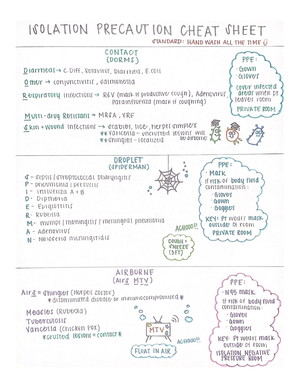 ISOLATION PRECAUTION CHEAT SHEET
STANDARD: HAND WASH ALL THE TIME
CONTACT
(DORMS)
Diarrhea → C. Diff, Rotavirus, E.coli
Other → Conjunctivitis, Salmonella
Respiratory Infections → RSV (mask if productive cough), Adenovirus,
Parainfluenza (mask if coughing)
Multi-drug Resistant → MRSA, VRE
Skin + Wound infections → scabies, lice, herpes simplex
**Varicella - encrusted lesions will
be airborne
**shingles - localized
PPE:
Gown
Gloves
cover infected
areas when pt
leaves room
PRIVATE ROOM
DROPLET
(SPIDERMAN)
S - sepsis / streptococcal pharyngitis
P - pneumonia / pertussis
I - influenza A + B
D - Diptheria
E - Epiglottitis
R - Rubella
M - mumps / meningitis / meningeal pneumonia
A - Adenovirus
N - Neisseria meningitidis
ACHOO!!
cough +
sneeze
(3ft)
PPE:
- Mask
if risk of body fluid
contamination:
Gloves
Gown
Goggles
KEY: Pt wears mask
outside of room
PRIVATE ROOM
AIRBORNE
(Airs MTV)
Airs = shingles (Herpes Zoster)
*disseminated disease or immunocompromised*
Measles (Rubeola)
Tuberculosis
Varicella (chicken pox)
*crusted lesions = contact*
MTV
ACHOO!!
FLOAT IN AIR
PPE:
- N95 mask
if risk of body fluid
contamination:
Gloves
Gown
Goggles
KEY: Pt wears mask
outside of room
ISOLATION NEGATIVE
PRESSURE ROOM